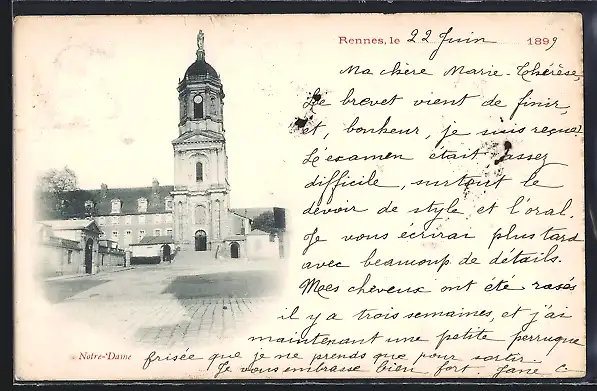 Rennes, le 22 Juin 1899
Ma chère Marie-Thérèse,
Le brevet vient de finir,
et, bonheur, je suis reçue!
L'examen était assez
difficile, surtout le
devoir de style et l'oral.
Je vous écrirai plus tard
avec beaucoup de détails.
Mes cheveux ont été rasés
il y a trois semaines, et j'ai
maintenant une petite perruque
frisée que je ne prends que pour sortir.
Je vous embrasse bien fort. Jane C
Notre-Dame